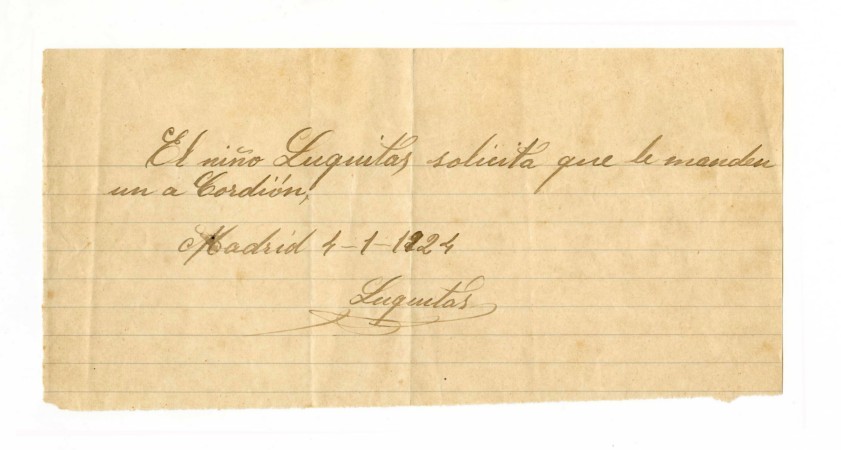 El niño Luquitas solicita que le manden
un a Cordión,
Madrid 4-1-1924
Luquitas